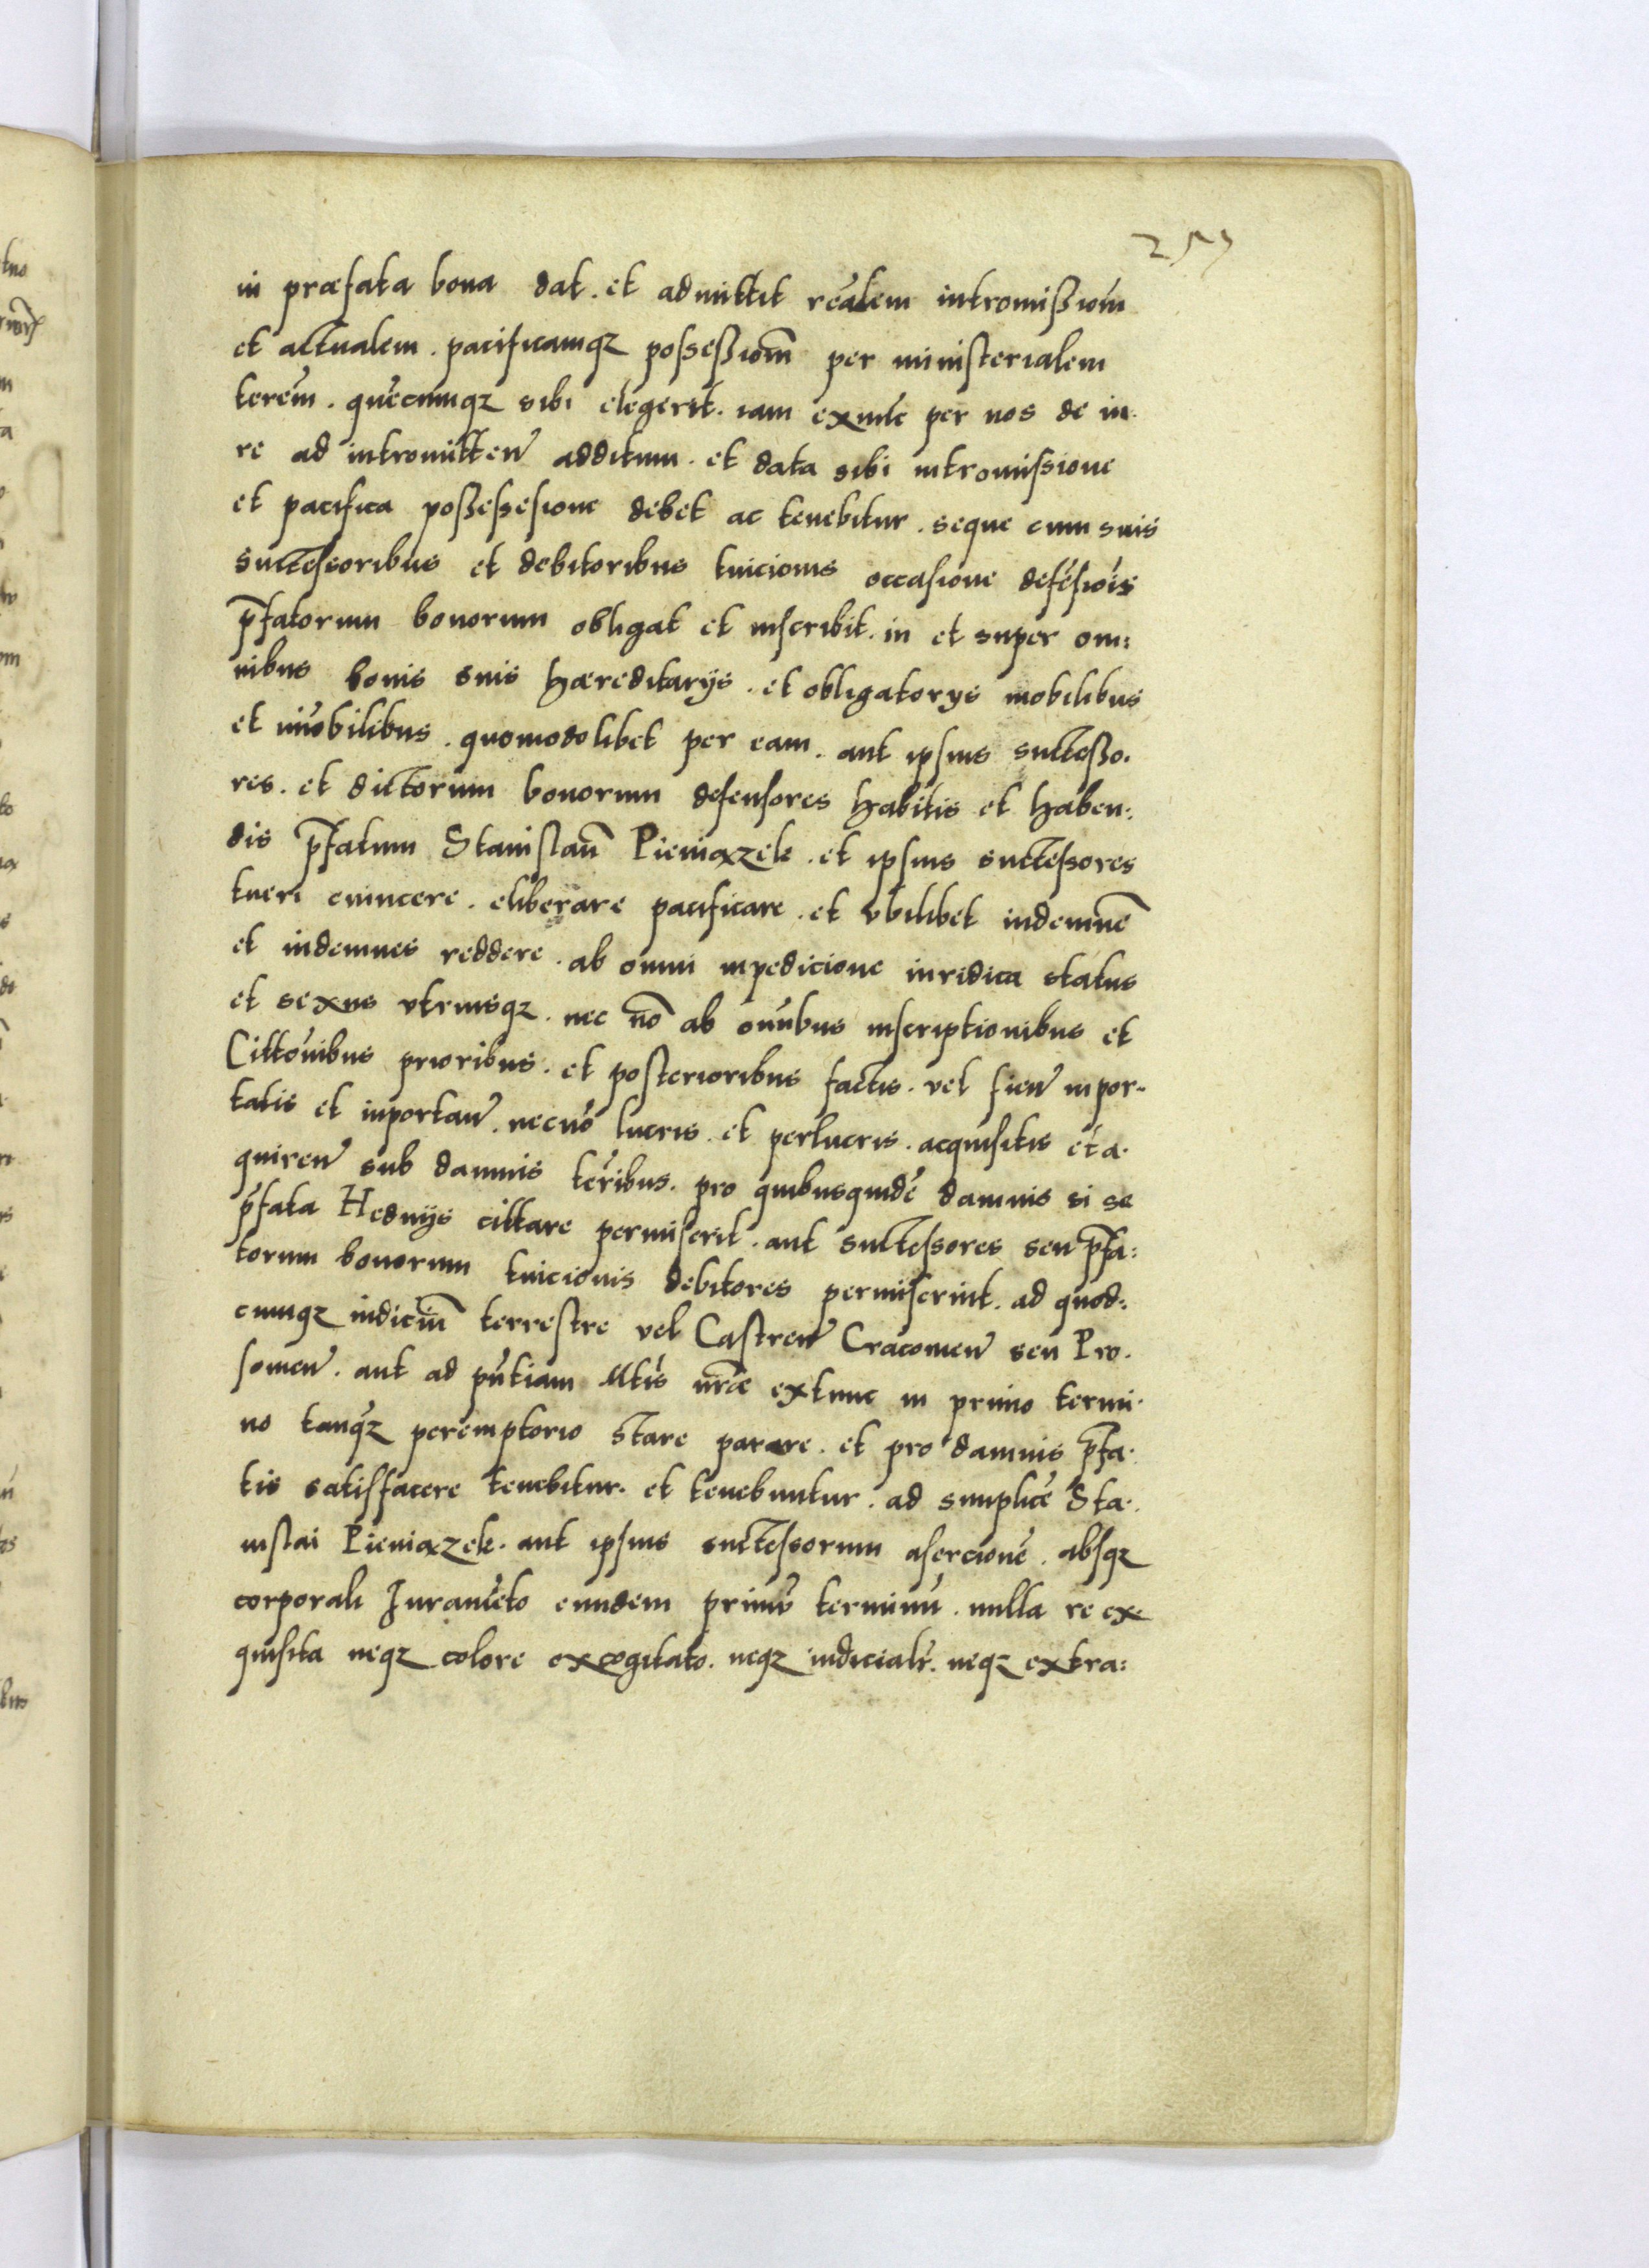 in præfata bona dat. et admittit reálem intromißiom̃
et actualem. pacificamqȝ possesßiom̃ per ministerialem
terem̃. quẽcumqȝ sibi elegerit. iam exnũc per nos de iu.
re ad intromitteñ additum. et data sibi intromissione
et pacifica posßessesione debet ac tenebitur. seque cum suis
suctessoribus et debitoribus tuicionis occasione defẽsiõis
p̃fatorum bonorum obligat et inscribit. in et super om:
nibus bonis suis hæreditarijs. et obligatorys mobilibus
et im̃obilibus. quomodolibet per eam. aut ipsius suctesßo.
res. et dictorum bonorum defensores habitis et haben:
dis p̃fatum Stanislaũ Pieniązek. et ipsius suctessores
tueri euincere. eliberare pacificare. et vbilibet indemnẽ
et indemnes reddere. ab omni inpedicione iuridica status
et sexus vtriusqȝ. nec nõ ab om̃ibus inscriptionibus et
Cittõnibus prioribus. et posterioribus factis. vel fieñ inpor.
tatis et inportañ. necnõ lucris. et perlucris. acquisitis et a.
quireñ sub damnis ter̃ibus. pro quibusquidẽ damnis si se
p̃fata Heduijs cittare permiserit. aut suctessores seu p̃fa:
torum bonorum tuicionis debitores permiserint. ad quod:
cumqȝ iudiciũ terrestre vel Castreñ Cracouieñ seu Pro.
souieñ. aut ad p̃ntiam Mtis ñræ extunc in primo termi.
no tanqȝ̃ peremptorio stare parare. et pro damnis p̃fa.
tis satisfacere tenebitur. et tenebuntur. ad simplicẽ Sta.
nislai Pieniązek. aut ipsius suctessorum asercionẽ. absqȝ
corporali Juramẽto eundem primũ terminũ. nulla re ex
quisita neqȝ colore excogitato. neqȝ iudicialr̃. neqȝ extra: